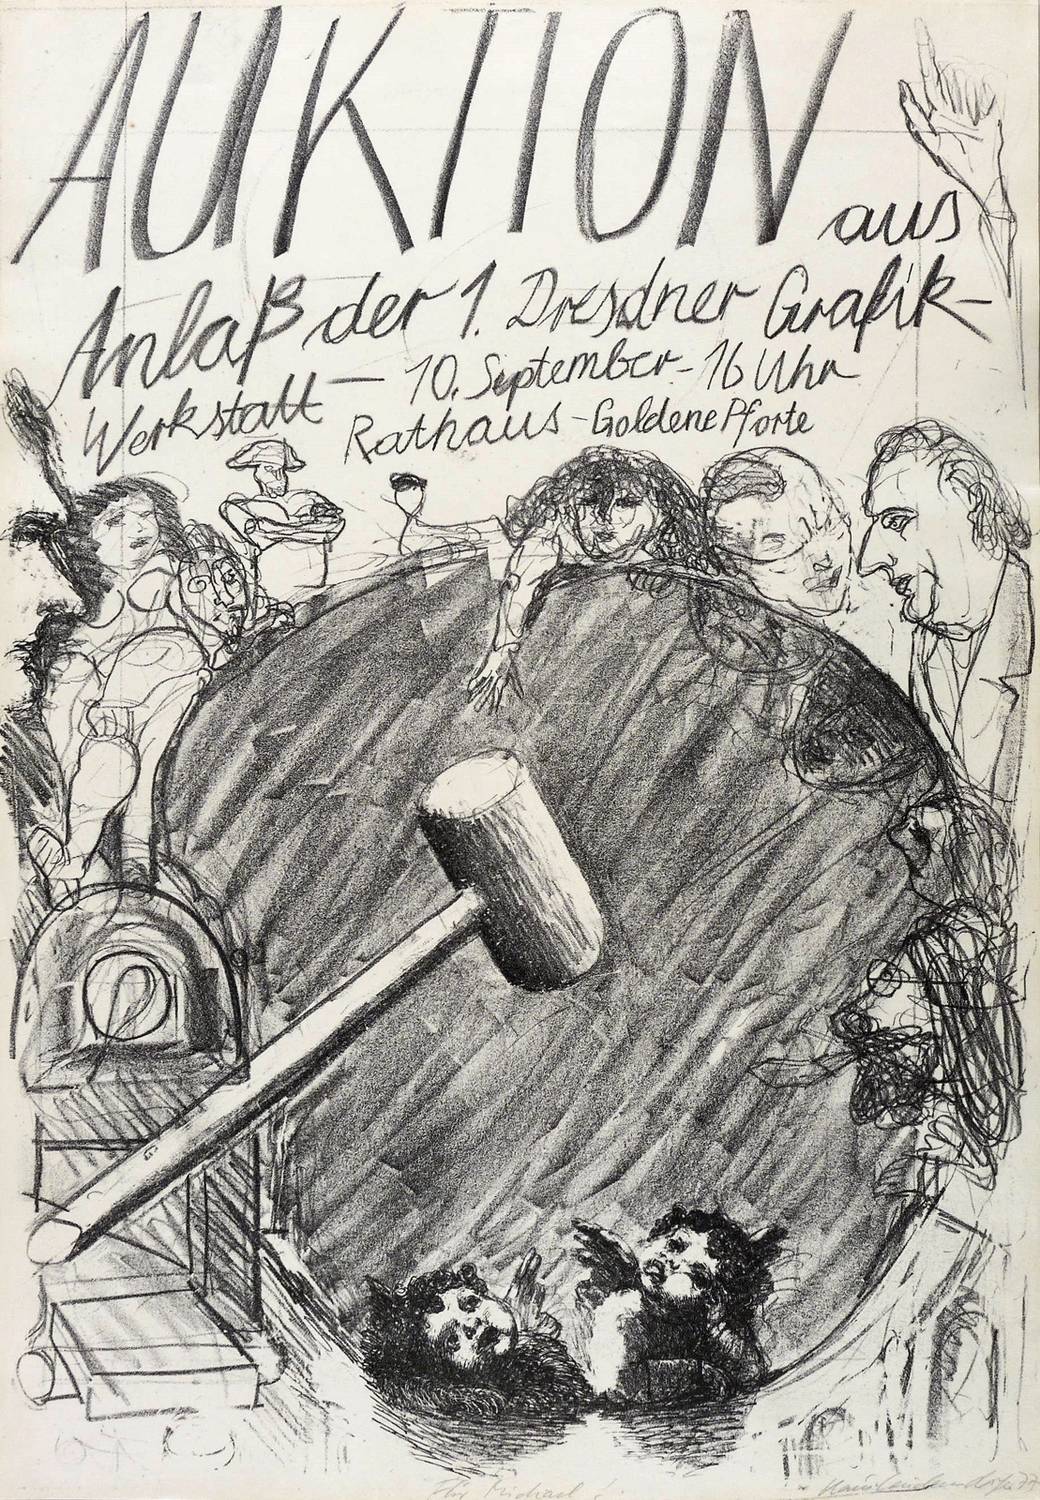 AUKTION aus
Anlaß der 1. Dresdner Grafik-
Werkstatt – 10. September - 16 Uhr
Rathaus - Goldene Pforte
Für Michael!